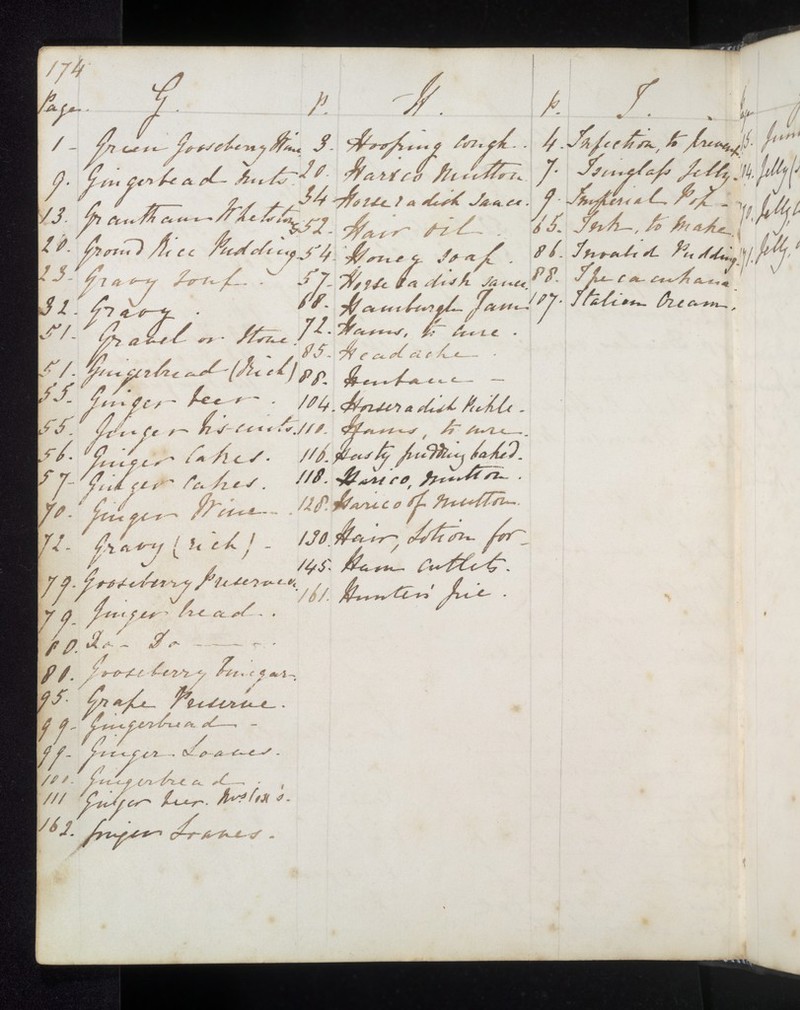 174
Page. G.
1 - Green Gooseberry Wine
9. Gingerbread Nuts
13. Grantham Whetstones
20. Ground Rice Pudding
23. Gravy Soup.
32. Gravy.
51. Gravel or Stone.
51. Gingerbread (Rich)
55. Ginger beer.
55. Ginger biscuits.
56. Ginger Cakes.
57. Ginger Cakes.
70. Ginger Wine.
72. Gravy (rich) -
79. Gooseberry Preserved.
79. Ginger bread.
80. Do - Do
80. Gooseberry Vinegar.
95. Grape Preserve.
99. Gingerbread -
99. Ginger Loaves.
100. Gingerbread.
111 Ginger beer. Mrs Cox's.
162. Ginger Loaves.
P. H.
3. Hooping Cough.
20. Harico Mutton
34 Horseradish Sauce.
52. Hair Oil.
54. Honey Soap.
57. Horse radish Sauce.
68. Hamburgh Jam
72. Hams, to cure.
85. Headache.
88. Henbane -
104. Horseradish Pickle.
110. Hams, to cure.
116. Hasty pudding baked.
118. Harico, mutton.
128. Harico of mutton
130. Hair, Lotion for -
145. Ham Cutlets.
161. Hunters' Pie.
p. I.
4. Infection, to prevent
7. Isinglass Jelly
9. Imperial Pop -
65. Ink, to make.
86. Invalid Pudding.
88. Ipecacuhana
107. Italian Cream.
14. Jelly
71. Jelly,